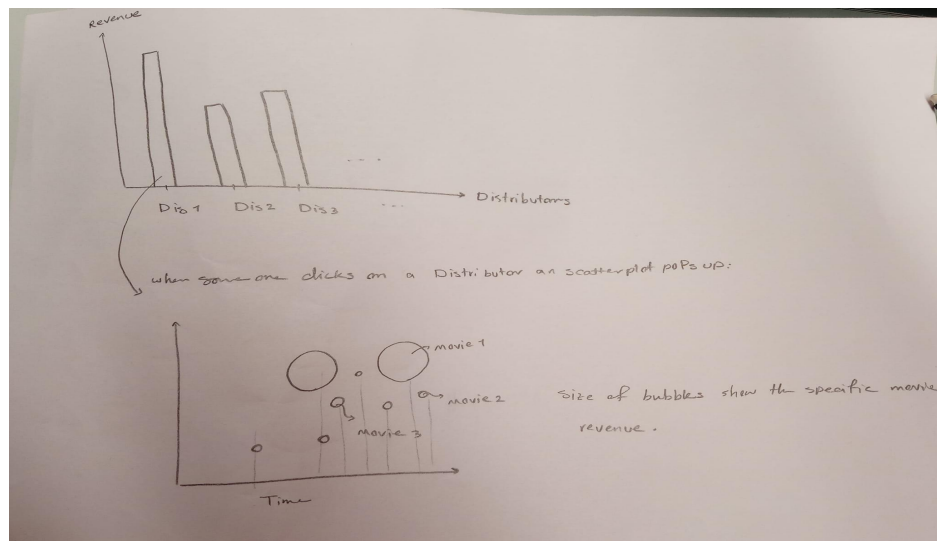 Revenue
Dis 1 Dis 2 Dis 3 ...
Distributors
when some one clicks on a Distributor an scatterplot pops up:
movie 1
movie 2
movie 3
Size of bubbles show the specific movie
revenue.
Time